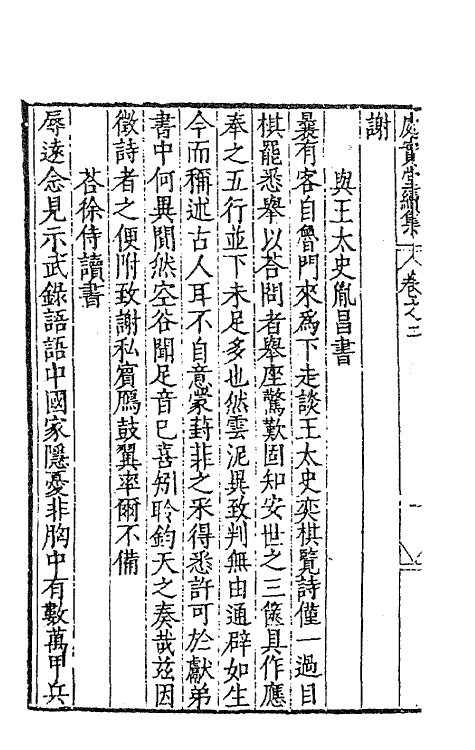 處實堂續集 卷之二
謝
與王太史胤昌書
曩有客自魯門來爲下走談王太史奕棋覽詩僅一過目
棋罷悉舉以荅問者舉座驚歎固知安世之三篋具作應
奉之五行並下未足多也然雲泥異致判無由通辟如生
今而稱述古人耳不自意蒙葑菲之采得悉許可於獻弟
書中何異聞然空谷聞足音已喜矧聆鈞天之奏哉茲因
徵詩者之便附致謝私賓鴈鼓翼率爾不備
荅徐侍讀書
辱遠念見示武錄語語中國家隱憂非胸中有數萬甲兵